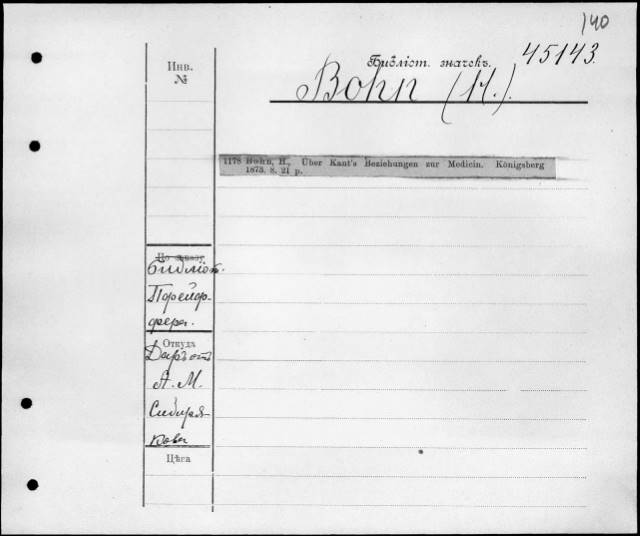 140
Инв.
№
Библіот. значекъ.
45143.
Bohn (H.).
1178 Bohn, H., Über Kant's Beziehungen zur Medicin. Königsberg
1873. 8. 21 p.
По заказу
библіот.
Прейф-
фера.
Откуда
Даръ отъ
А. М.
Сибиря-
кова
Цѣна